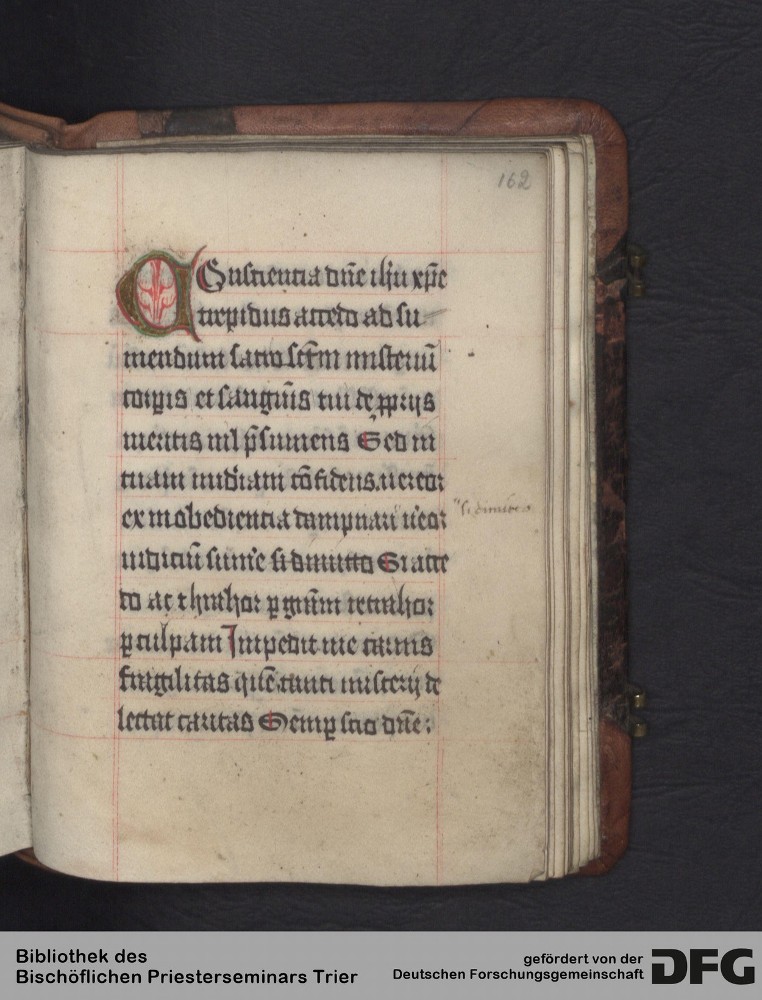 162
Conscientia dn̄e ih̄u xp̄e
trepidus accedo ad su
mendum sacro sct̄m misteriū
corꝑis et sanguīs tui de ꝓprijs
meritis nil p̄sumens Sed in
tuam mīam cōfidens
ex inobedientia dampnari
iudiciū sume si dimitto Si acce
do ac ꝑ grām retrahor
ꝑ culpam Impedit me carnis
fragilitas tanti misterij de
lectat caritas Semꝑ scio dn̄e:
si dimitto
Bibliothek des
Bischöflichen Priesterseminars Trier
gefördert von der
Deutschen Forschungsgemeinschaft
DFG